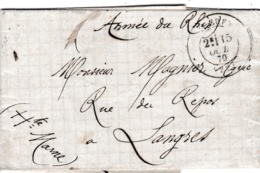 Armée du Rhin
2E/15
70
Monsieur Magnier
Rue du Repos
à
Langres
(Hte Marne)